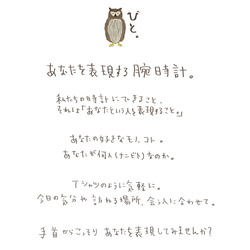 びと。
あなたを表現する腕時計。
私たちの時計にできること、
それは「あなたという人を表現すること。」
あなたの好きなモノ、コト。
あなたが何人(ナニビト)なのか。
Tシャツのように気軽に。
今日の気分や訪れる場所、会う人に合わせて。
手首からこっそりあなたを表現してみませんか?